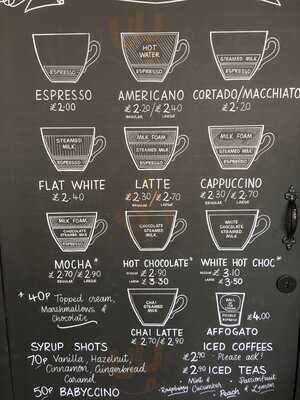 ESPRESSO
HOT WATER
ESPRESSO
STEAMED MILK
ESPRESSO
ESPRESSO
£2.00
AMERICANO
£2.20/£2.40
REGULAR LARGE
CORTADO/MACCHIATO
£2.20
STEAMED MILK
ESPRESSO
MILK FOAM
STEAMED MILK
ESPRESSO
MILK FOAM
STEAMED MILK
ESPRESSO
FLAT WHITE
£2.40
LATTE
£2.30/£2.70
REGULAR LARGE
CAPPUCCINO
£2.30/£2.70
REGULAR LARGE
MILK FOAM
CHOCOLATE
STEAMED MILK
ESPRESSO
CHOCOLATE
STEAMED MILK
WHITE CHOCOLATE
STEAMED MILK
MOCHA*
£2.70/£2.90
REGULAR LARGE
HOT CHOCOLATE*
REGULAR £2.90
LARGE £3.30
WHITE HOT CHOC*
REGULAR £3.10
LARGE £3.50
*40p Topped cream,
Marshmallows &
Chocolate
CHAI
STEAMED MILK
CHAI LATTE
£2.70/£2.90
DOUBLE ESPRESSO
£4.00
AFFOGATO
SYRUP SHOTS
70p Vanilla, Hazelnut,
Cinnamon, Gingerbread
Caramel
50p BABYCCINO
ICED COFFEES
£2.90 - Please ask!
£2.90 ICED TEAS
Mint &
Cucumber
Raspberry
Passionfruit
Peach & Lemon